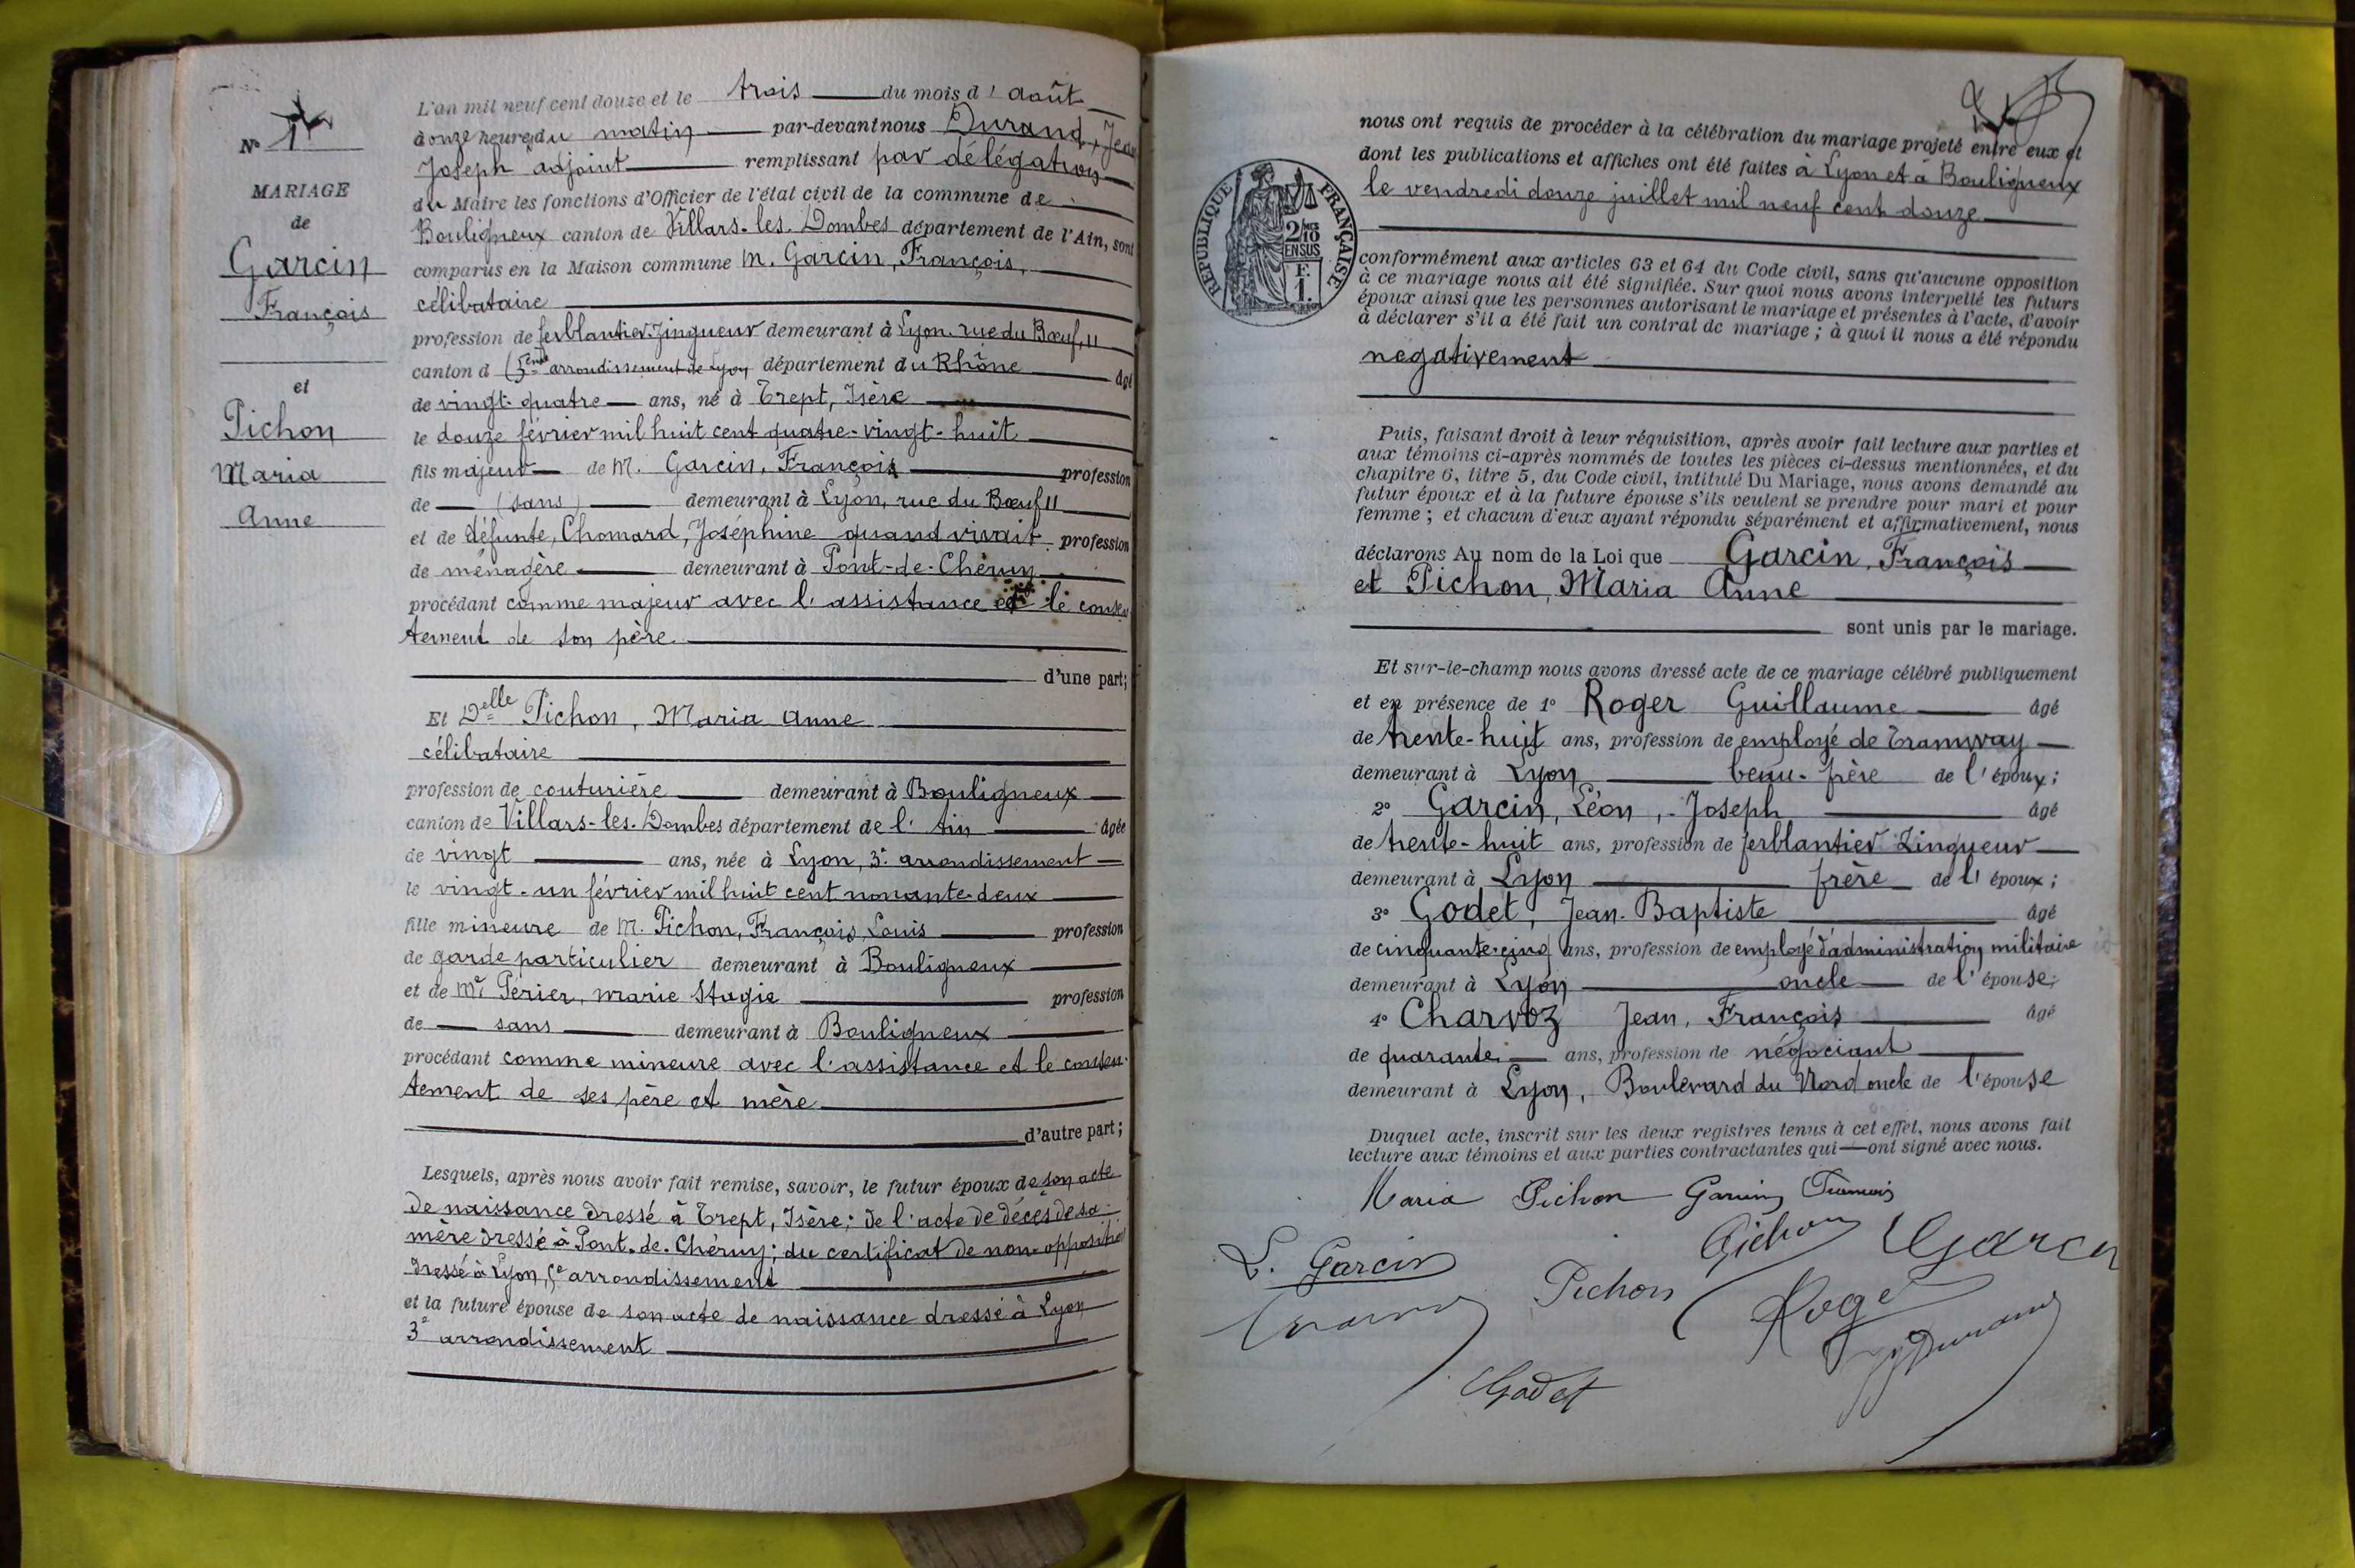 N° 1
MARIAGE
de
Garcin
François
et
Pichon
Maria
Anne
L'an mil neuf cent douze et le trois du mois d'août
à onze heures du matin par-devant nous Durand, Jean
Joseph adjoint remplissant par délégation
du Maire les fonctions d'Officier de l'état civil de la commune de
Bouligneux canton de Villars-les-Dombes département de l'Ain, sont
comparus en la Maison commune M. Garcin, François,
célibataire
profession de ferblantier-zingueur demeurant à Lyon, rue du Bœuf, 11
canton d (5ème arrondissement de Lyon département du Rhône âgé
de vingt-quatre ans, né à Trept, Isère
le douze février mil huit cent quatre-vingt-huit
fils majeur de M. Garcin, François profession
de (sans) demeurant à Lyon, rue du Bœuf 11
et de défunte, Chomard, Joséphine quand vivait profession
de ménagère demeurant à Pont-de-Chéruy
procédant comme majeur avec l'assistance et le consen
tement de son père
d'une part;
Et Delle Pichon, Maria Anne
célibataire
profession de couturière demeurant à Bouligneux
canton de Villars-les-Dombes département de l'Ain âgée
de vingt ans, née à Lyon, 3e arrondissement
le vingt-un février mil huit cent nonante-deux
fille mineure de M. Pichon, François, Louis profession
de garde particulier demeurant à Bouligneux
et de Me Périer, Marie Stagie profession
de sans demeurant à Bouligneux
procédant comme mineure avec l'assistance et le consen-
tement de ses père et mère
d'autre part;
Lesquels, après nous avoir fait remise, savoir, le futur époux de son acte
de naissance dressé à Trept, Isère; de l'acte de décès de sa
mère dressé à Pont-de-Chéruy; du certificat de non-opposition
dressé à Lyon, 5e arrondissement
et la future épouse de son acte de naissance dressé à Lyon
3e arrondissement
nous ont requis de procéder à la célébration du mariage projeté entre eux et
dont les publications et affiches ont été faites à Lyon et à Bouligneux
le vendredi douze juillet mil neuf cent douze
RÉPUBLIQUE FRANÇAISE
2/10
EN SUS
F.
1.
conformément aux articles 63 et 64 du Code civil, sans qu'aucune opposition
à ce mariage nous ait été signifiée. Sur quoi nous avons interpellé les futurs
époux ainsi que les personnes autorisant le mariage et présentes à l'acte, d'avoir
à déclarer s'il a été fait un contrat de mariage; à quoi il nous a été répondu
négativement
Puis, faisant droit à leur réquisition, après avoir fait lecture aux parties et
aux témoins ci-après nommés de toutes les pièces ci-dessus mentionnées, et du
chapitre 6, titre 5, du Code civil, intitulé Du Mariage, nous avons demandé au
futur époux et à la future épouse s'ils veulent se prendre pour mari et pour
femme; et chacun d'eux ayant répondu séparément et affirmativement, nous
déclarons Au nom de la Loi que Garcin, François
et Pichon, Maria Anne
sont unis par le mariage.
Et sur-le-champ nous avons dressé acte de ce mariage célébré publiquement
et en présence de 1° Roger Guillaume âgé
de trente-huit ans, profession de employé de Tramway
demeurant à Lyon beau-frère de l'époux;
2° Garcin, Léon, Joseph âgé
de trente-huit ans, profession de ferblantier Zingueur
demeurant à Lyon frère de l'époux;
3° Godet, Jean-Baptiste âgé
de cinquante-cinq ans, profession de employé d'administration militaire
demeurant à Lyon oncle de l'épouse;
4° Charvoz Jean, François âgé
de quarante ans, profession de négociant
demeurant à Lyon, Boulevard du Nord oncle de l'épouse
Duquel acte, inscrit sur les deux registres tenus à cet effet, nous avons fait
lecture aux témoins et aux parties contractantes qui ont signé avec nous.
Maria Pichon Garcin François
L. Garcin Pichon Garcin
Pichon Roger
JJ Durand
Godet